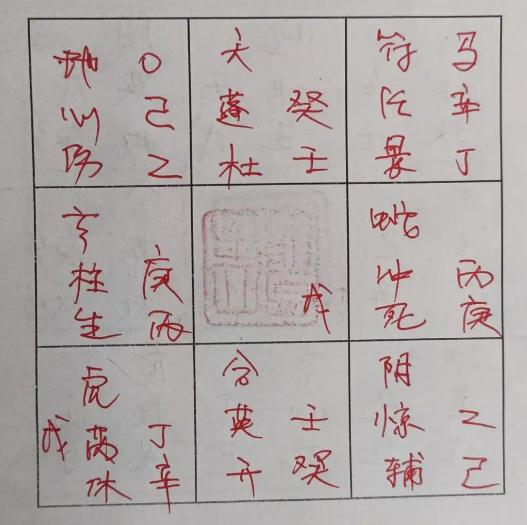 地 ○
心 己
伤 乙
天
蓬 癸
杜 壬
符 马
任 辛
景 丁
玄
柱 庚
生 丙
戊
蛇
冲 丙
死 庚
虎
戊 芮 丁
休 辛
合
英 壬
开 癸
阴
惊 乙
辅 己